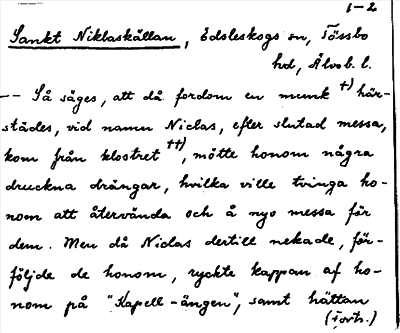 1-2
Sankt Niklaskällan, Edsleskogs sn, Tössbo
hd, Älvsb. l.
-- Så säges, att då fordom en munk +) här-
städes, vid namn Niclas, efter slutad messa,
kom från klostret ++), mötte honom några
druckna drängar, hvilka ville tvinga ho-
nom att återvända och å nyo messa för
dem. Men då Niclas dertill nekade, för-
följde de honom, ryckte kappan af ho-
nom på "Kapell-ängen", samt hättan
(Forts.)